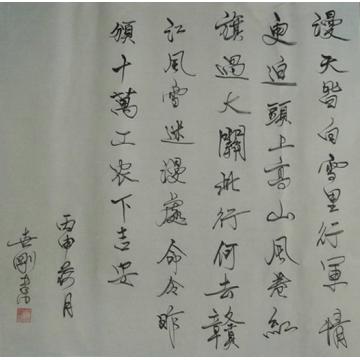 漫天皆白雪里行軍情
更迫頭上高山風卷紅
旗過大關此行何去贛
江風雪迷漫處命令昨
頒十萬工农下吉安
丙申荷月
剛